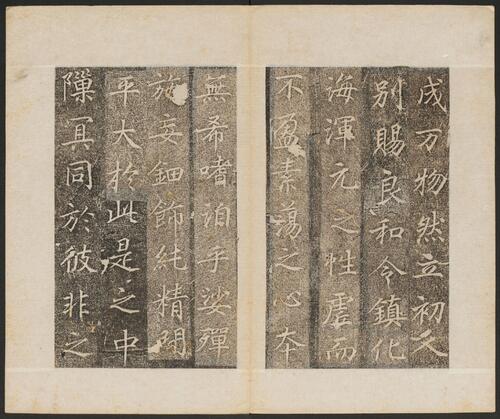 成万物然立初人
別賜良和令鎮化
海渾元之性虛而
不盈素蕩之心本
無希嗜洎乎娑殫
施妄鈿飾純精間
平大於此是之中
隟冥同於彼非之